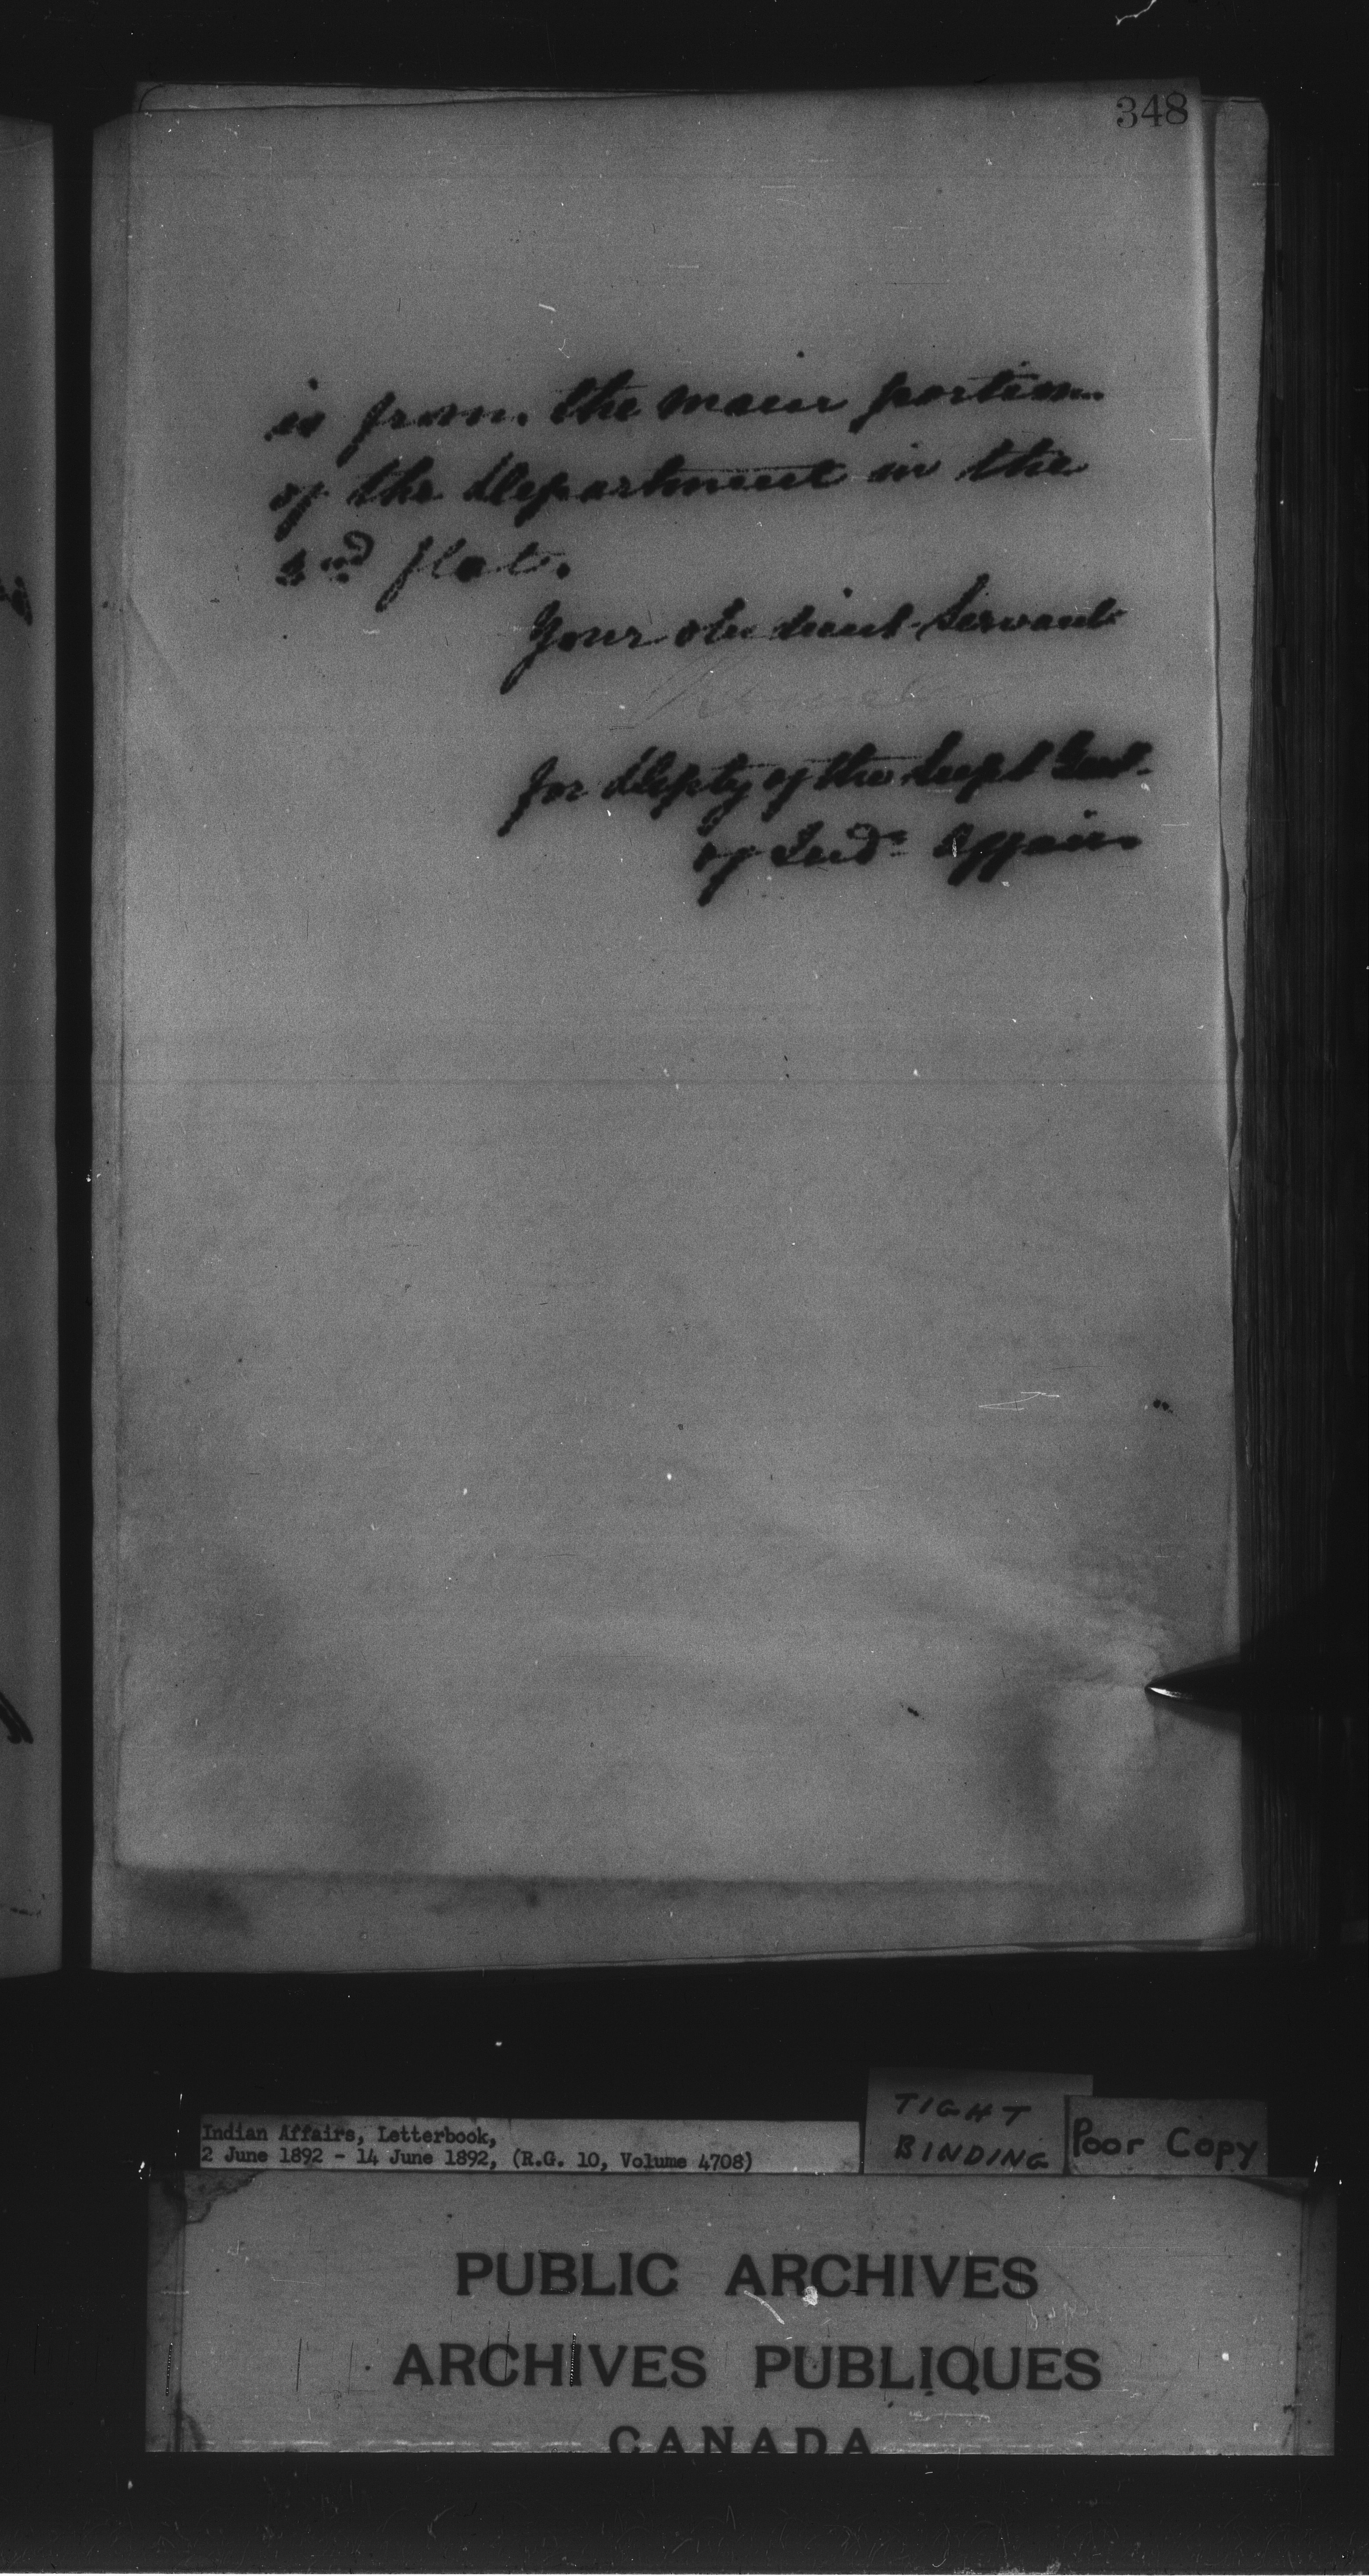 348
is from the main portion
of the Department in the
2nd flat.
Your obedient Servant
for Depty of the Supt Genl.
of Indn Affairs
Indian Affairs, Letterbook,
2 June 1892 - 14 June 1892, (R.G. 10, Volume 4708)
TIGHT
BINDING
Poor Copy
PUBLIC ARCHIVES
ARCHIVES PUBLIQUES
CANADA